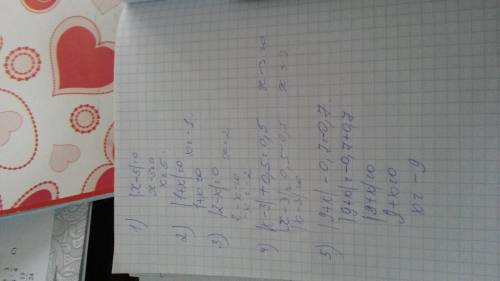 1) |x-5|=0
x-5=0
x=5
2) |1+x|=0
1+x=0 x=-1
3) |2-x|=0
2-x=0
-x=-2 x=2
4) |x-3|+0,5=0,5 x-3=0
|x-3|=0,5-0,5 x=3
|x-3|=0
5) |9+x|-0,7=-0,7
|9+x|=-0,7+0,7
|9+x|=0
9+x=0
x=-9